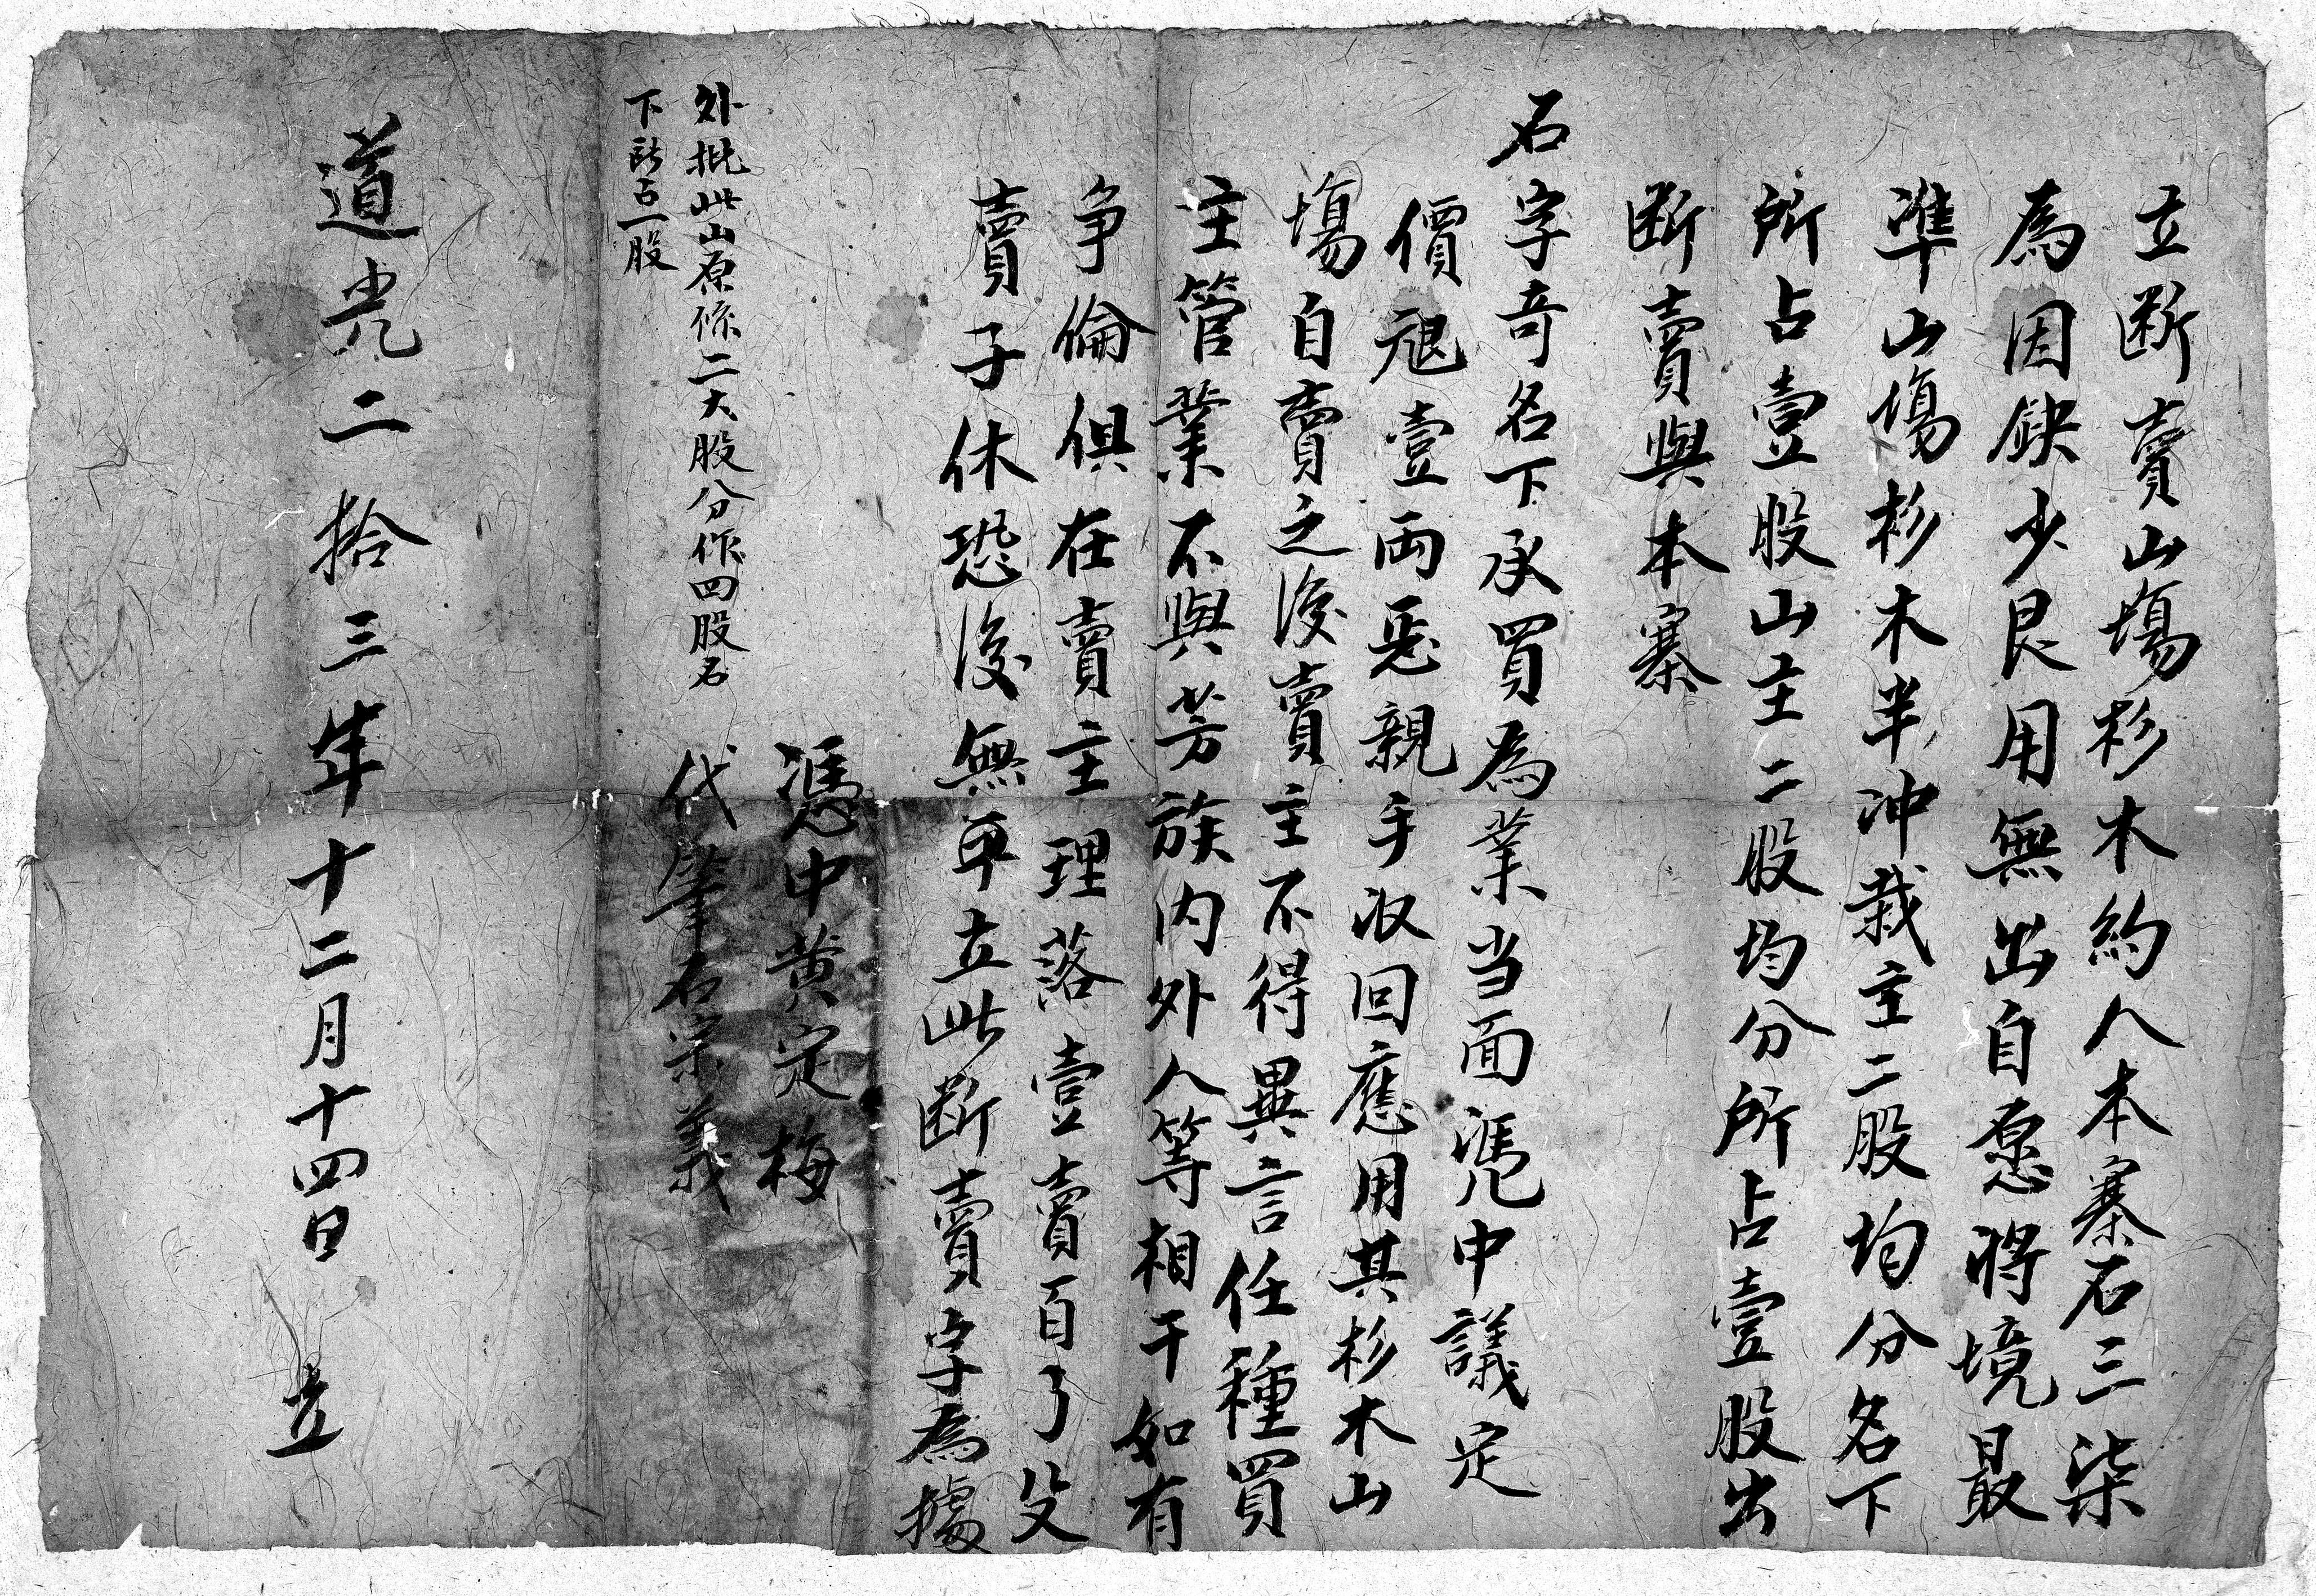 立断賣山塲杉木約人本寨石三柒
為因缺少艮用無出自愿將境最
凖山塲杉木半冲栽主二股均分名下
所占壹股山主二股均分所占壹股出
断賣與本寨
石字奇名下承買為業当面凴中議定
價艮壹両惡親手收回應用其杉木山
塲自賣之後賣主不得異言任種買
主管業不與芳族内外人等相干如有
争倫俱在賣主理落壹賣百了父
賣子休恐後無立此断賣字為據
憑中黄定梅
外批此山原係二大股分作四股石
下所占一股
代筆石宗義
道光二拾三年十二月十四日 立